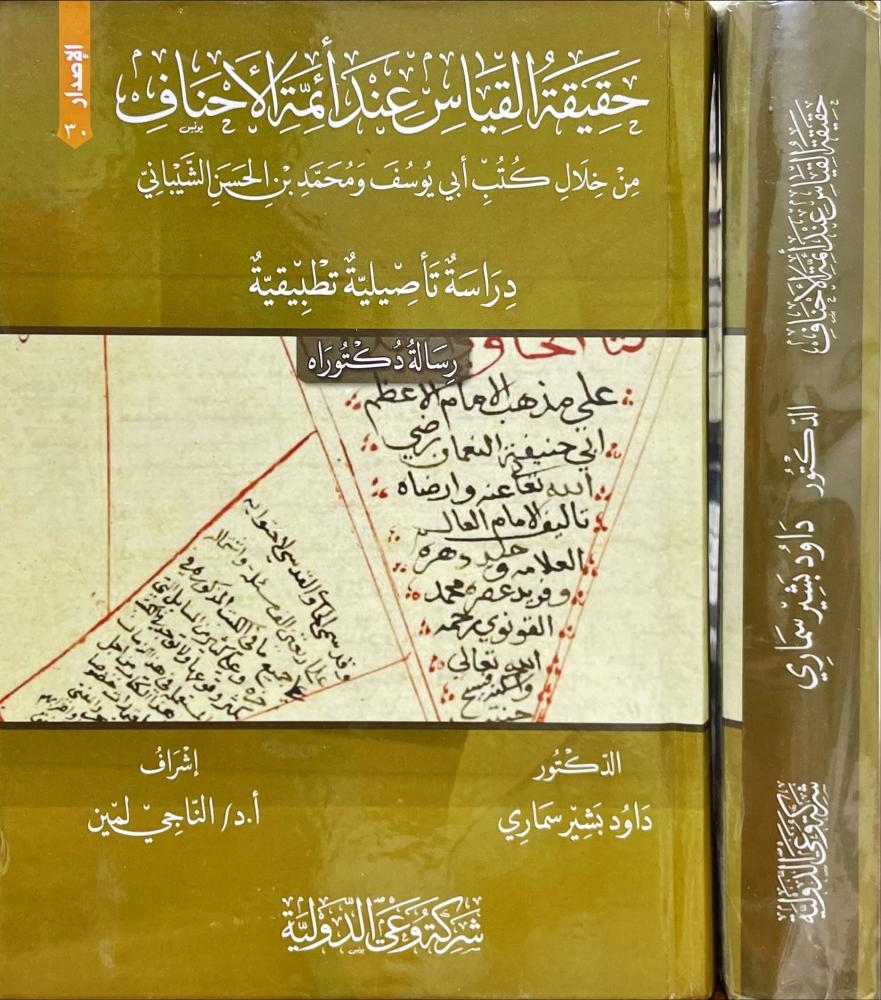 الإصدار
٣٠
حَقِيقَةُ القِيَاسِ عِنْدَ أَئِمَّةِ الأَحْنَافِ
مِنْ خِلَالِ كُتُبِ أَبِي يُوسُفَ وَمُحَمَّدِ بْنِ الحَسَنِ الشَّيْبَانِيِّ
دِرَاسَةٌ تَأْصِيلِيَّةٌ تَطْبِيقِيَّةٌ
رِسَالَةُ دُكْتُورَاه
على مذهب الامام الاعظم
ابي حنيفة النعمان رضي
الله تعالى عنه وارضاه
تاليف الامام العالم
العلامه وحيد دهره
وفريد عصره محمد
القونوي رحمه
الله تعالى
الدّكْتُور
دَاوُد بَشِير سَمَارِي
إشْرَافُ
أ.د/ النَّاجِي لمِين
شَرِكَة وَعْيِ الدَّوْلِيَّة
حَقِيقَةُ القِيَاسِ عِنْدَ أَئِمَّةِ الأَحْنَافِ
الدّكْتُور
دَاوُد بَشِير سَمَارِي
شَرِكَة وَعْيِ الدَّوْلِيَّة